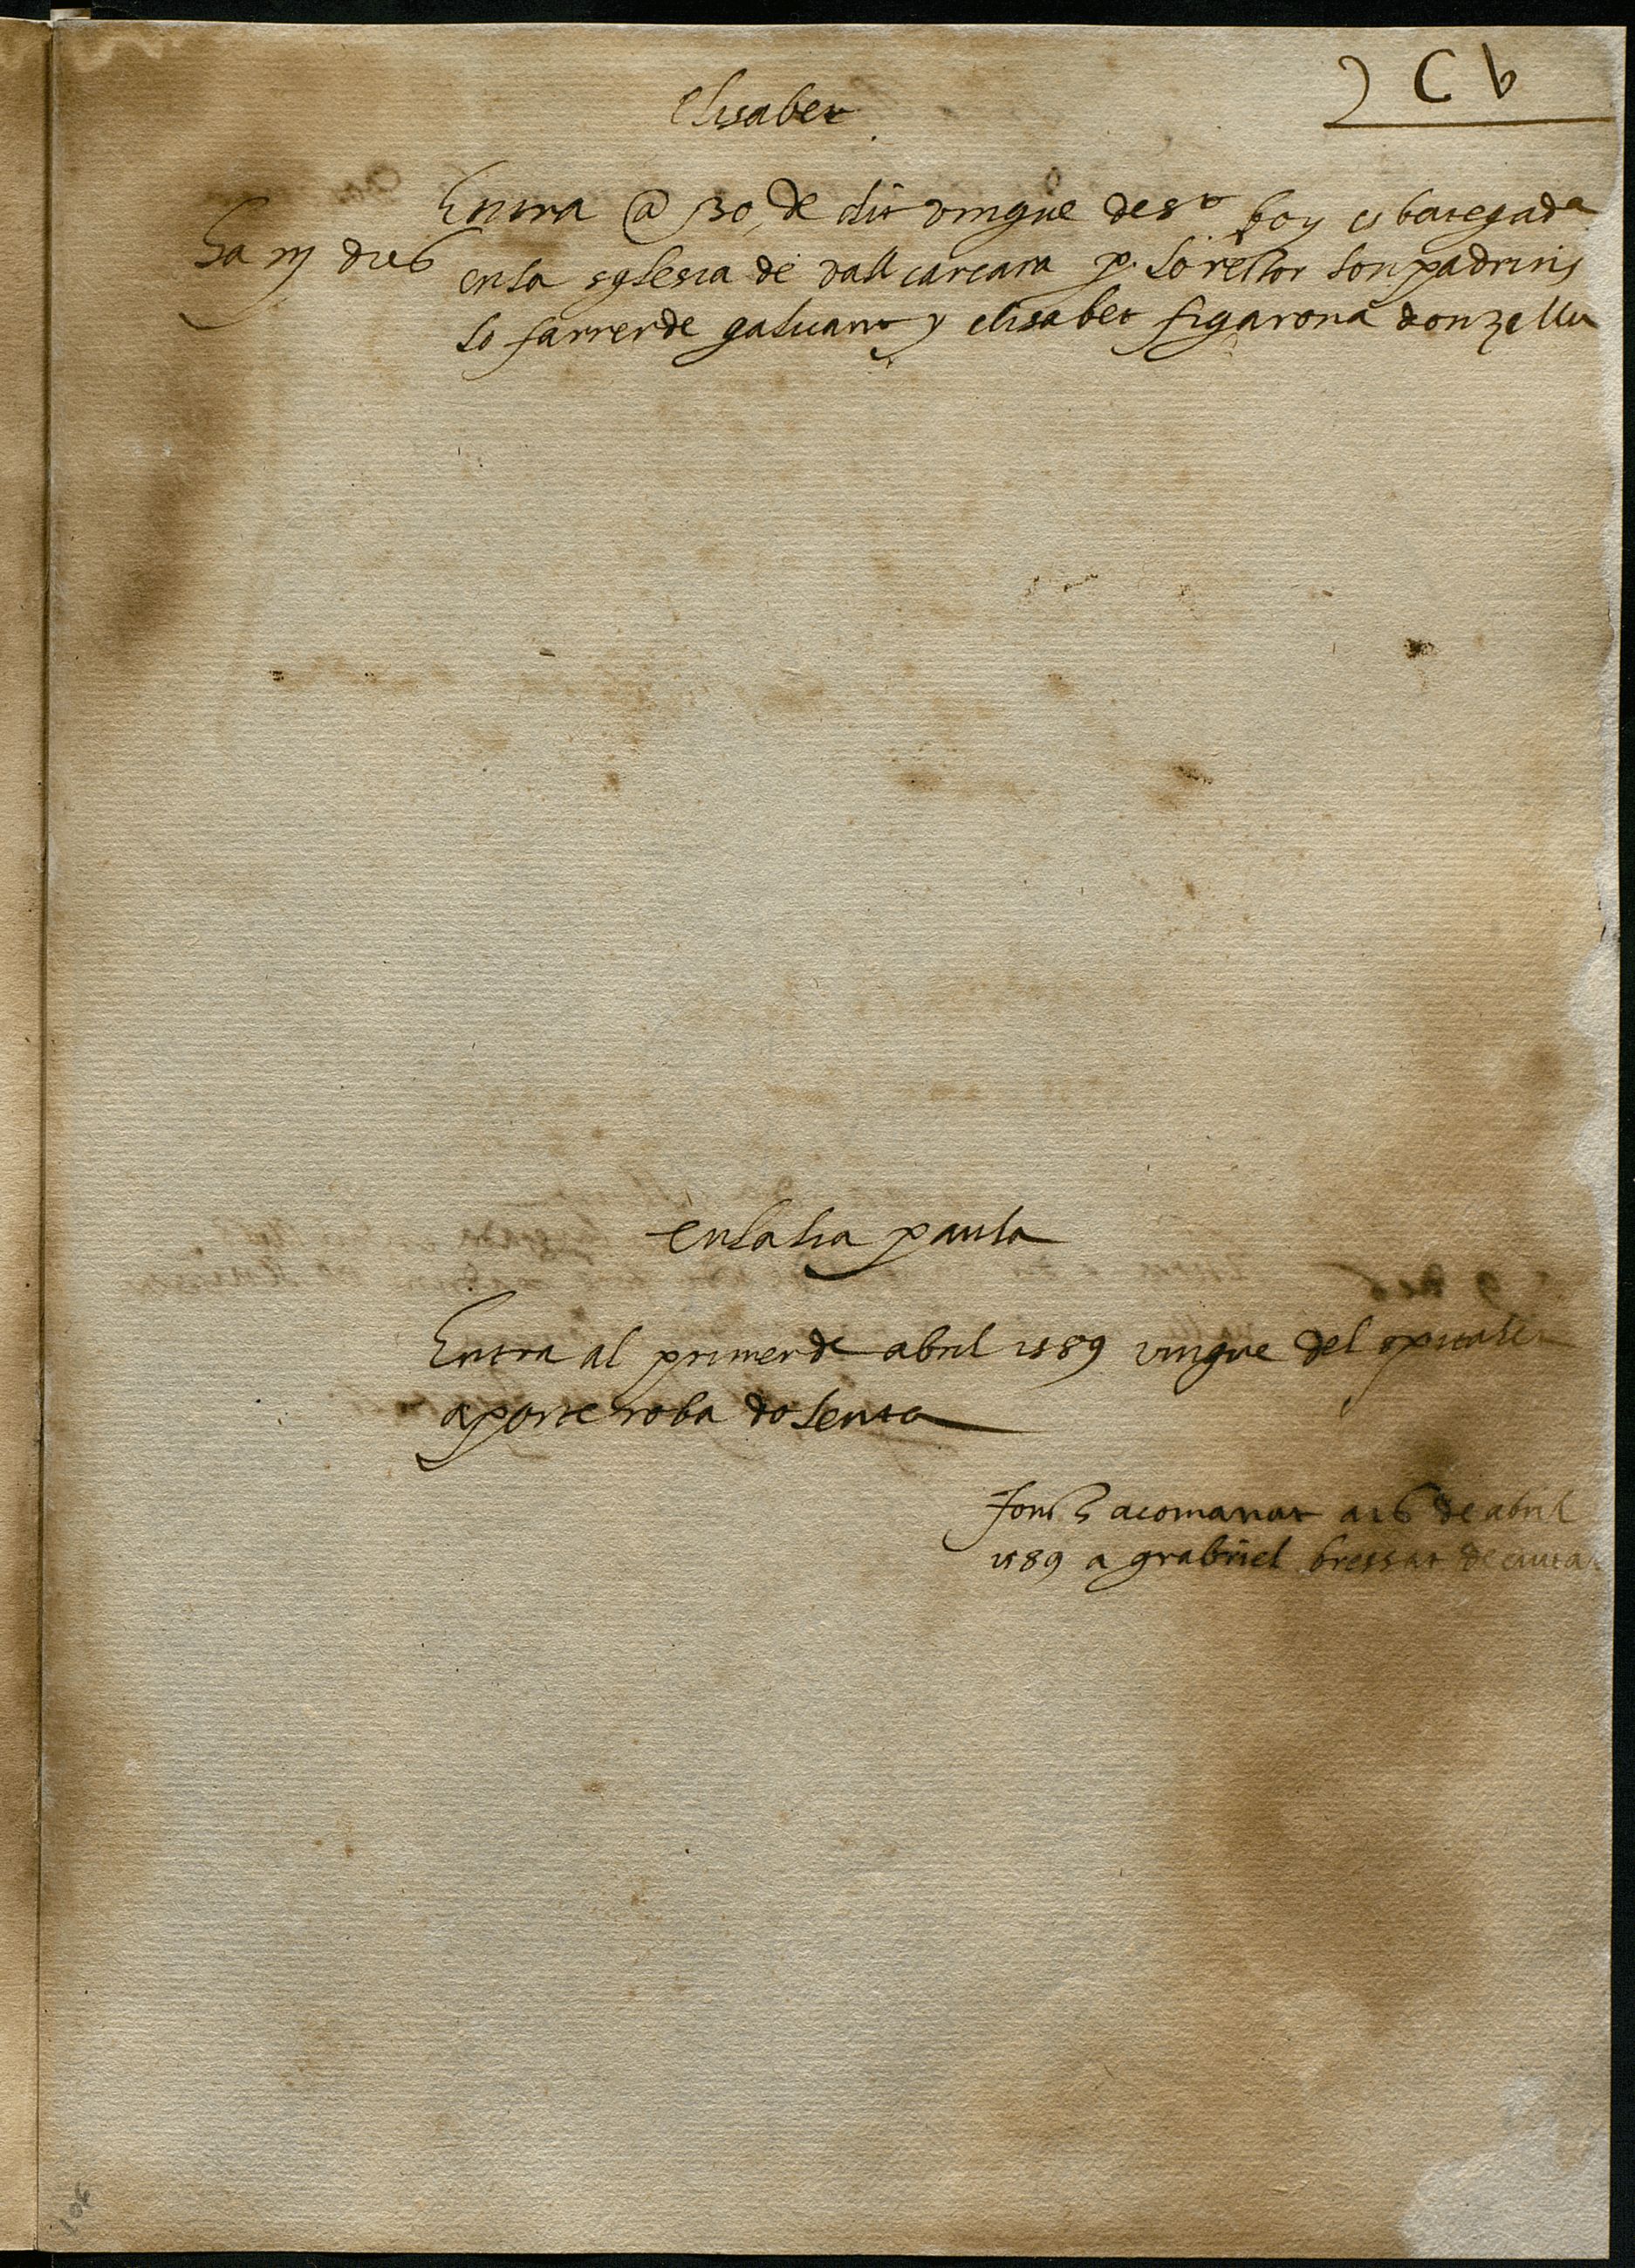 2 C b
Elisabet
Entra @ 30 de dit vingue de st boy es bategada
ha iij dies
en la sglesia de vall carcara p. lo rector son padrins
lo farrer de galicant y elisabet figarona donzella
eulalia paula
Entra al primer de abril 1589 vingue del spitalet
aporte roba dolenta
fonch acomanat a 16 de abril
1589 a grabriel bressat de